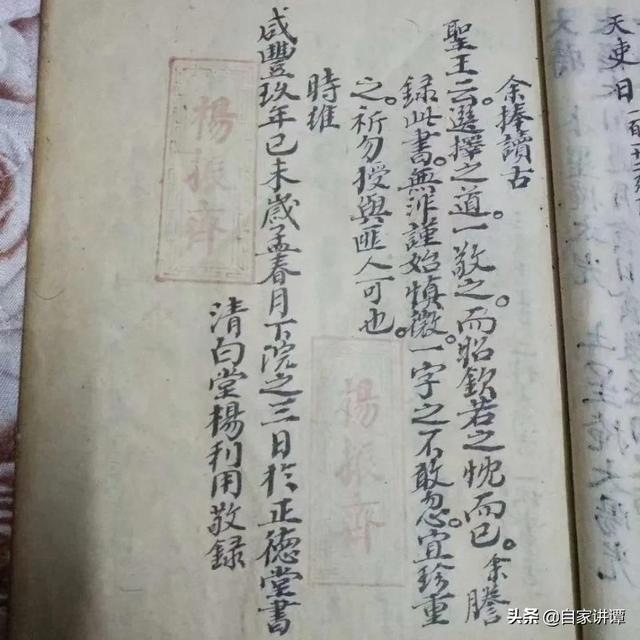 天吏日
余捧讀古
聖王云。選擇之道。一敬之。而昭欽若之忱而已。余謄
録此書。無非謹始慎微。一字之不敢忽。宜珍重
之。祈勿授與匪人可也。
時維
咸豐玖年己未歲孟春月下院之三日於正德堂書
清白堂楊利用敬録
楊振齊
楊振齊
头条 @自家讲谭